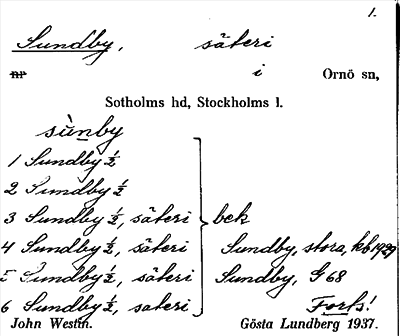 1.
Sundby, säteri
nr i Ornö sn,
Sotholms hd, Stockholms l.
sùnby
1 Sundby ½
2 Sundby ½
3 Sundby ½, säteri } bek
4 Sundby ½, säteri Sundby, stora, kb 1929
5 Sundby ½, säteri Sundby, G 68
6 Sundby ½, säteri Forts!
John Westin. Gösta Lundberg 1937.